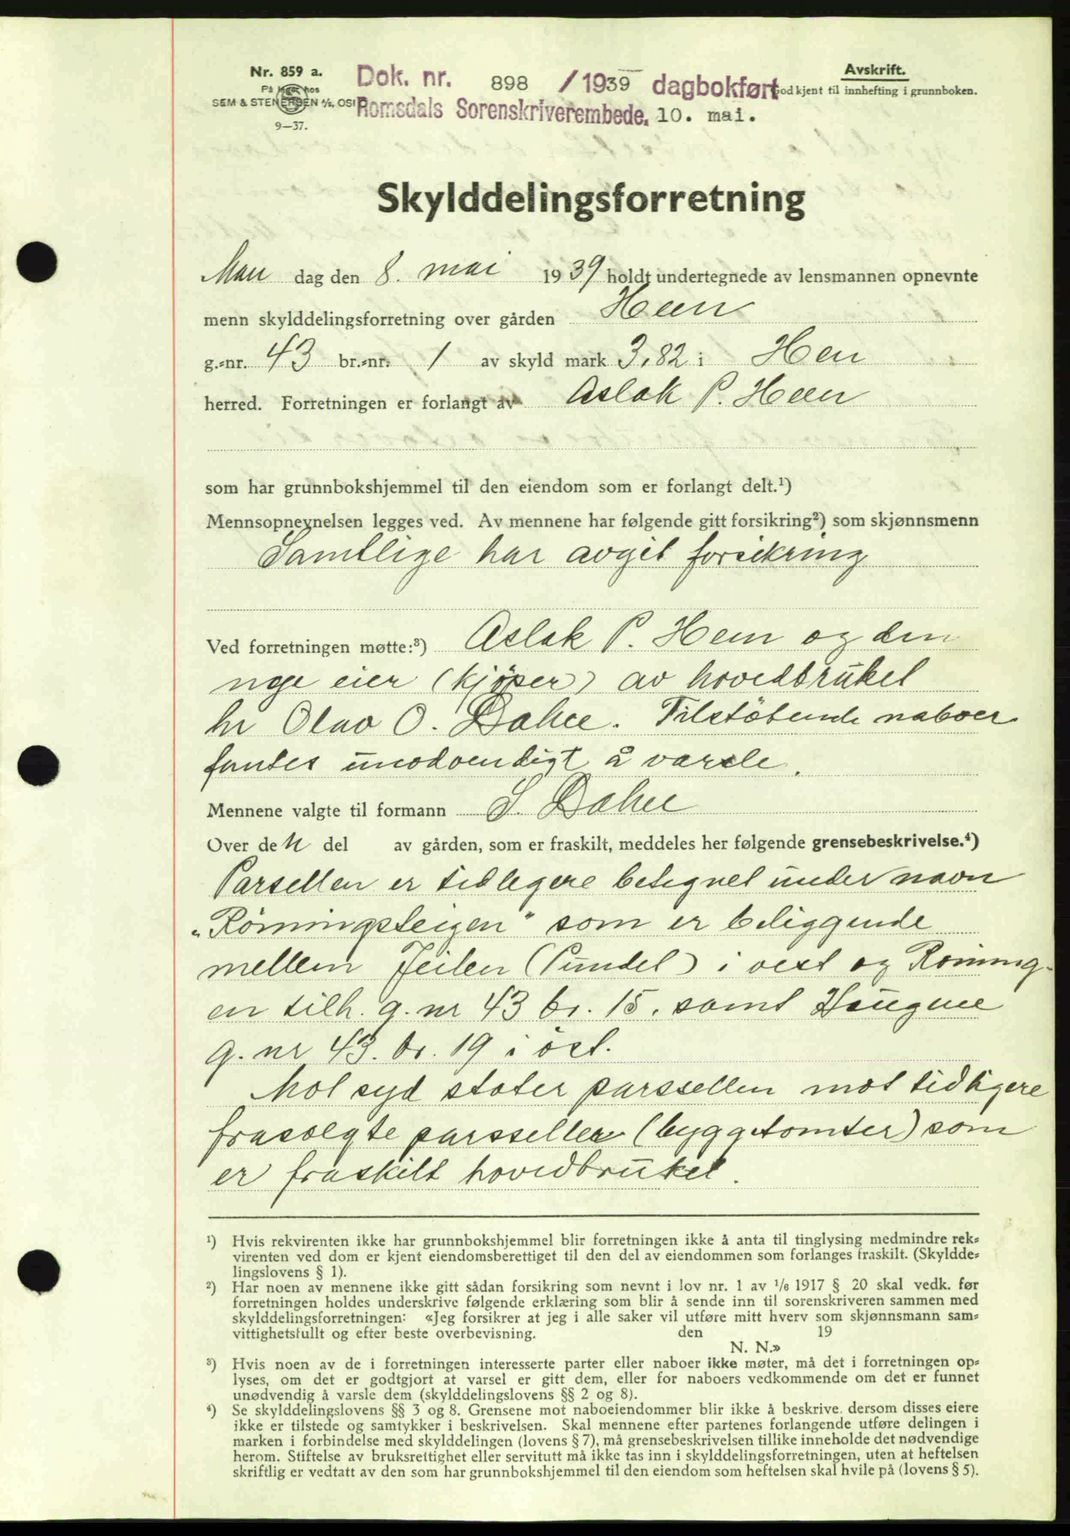 Nr. 859 a.
På lager hos
SEM & STENERSEN A/S, OSLO
9—37.
Dok. nr. 898 /1939 dagbokført
Romsdals Sorenskriverembede, 10. mai.
Avskrift.
Godkjent til innhefting i grunnboken.
Skylddelingsforretning
Man dag den 8. mai 1939 holdt undertegnede av lensmannen opnevnte
menn skylddelingsforretning over gården Heen
g.-nr. 43 br.-nr. 1 av skyld mark 3,82 i Hen
herred. Forretningen er forlangt av Aslak P. Heen
som har grunnbokshjemmel til den eiendom som er forlangt delt.¹)
Mennsopnevnelsen legges ved. Av mennene har følgende gitt forsikring²) som skjønnsmenn
Samtlige har avgit forsikring
Ved forretningen møtte:³) Aslak P. Heen og den
nye eier (kjöper) av hovedbruket
hr Olav O. Dahle. Tilstötende naboer
fantes unödvendigt å varsle.
Mennene valgte til formann S. Dahle
Over den del av gården, som er fraskilt, meddeles her følgende grensebeskrivelse.⁴)
Parsellen er tidligere betegnet under navn
„Römmingsteigen" som er beliggende
mellem Jeilen (Pundel) i vest og Röming-
en tilh. g. nr. 43 br. 15. samt Haugene
g. nr 43. br. 19 i öst.
Mot syd støter parssellen mot tidligere
frasolgte parsseller (byggetomter) som
er fraskilt hovedbruket.
¹) Hvis rekvirenten ikke har grunnbokshjemmel blir forretningen ikke å anta til tinglysing medmindre rek-
virenten ved dom er kjent eiendomsberettiget til den del av eiendommen som forlanges fraskilt. (Skyldde-
lingslovens § 1).
²) Har noen av mennene ikke gitt sådan forsikring som nevnt i lov nr. 1 av 1/6 1917 § 20 skal vedk. før
forretningen holdes underskrive følgende erklæring som blir å sende inn til sorenskriveren sammen med
skylddelingsforretningen: «Jeg forsikrer at jeg i alle saker vil utføre mitt hverv som skjønnsmann sam-
vittighetsfullt og efter beste overbevisning. den 19
N. N.»
³) Hvis noen av de i forretningen interesserte parter eller naboer ikke møter, må det i forretningen op-
lyses, om det er godtgjort at varsel er gitt dem, eller for naboers vedkommende om det er funnet
unødvendig å varsle dem (skylddelingslovens §§ 2 og 8).
⁴) Se skylddelingslovens §§ 3 og 8. Grensene mot naboeiendommer blir ikke å beskrive, dersom disses eiere
ikke er tilstede og samtykker i beskrivelsen. Skal mennene efter partenes forlangende utføre delingen i
marken i forbindelse med skylddelingen (lovens § 7), må grensebeskrivelsen tillike inneholde det nødvendige
herom. Stiftelse av bruksrettighet eller servitutt må ikke tas inn i skylddelingsforretningen, uten at heftelsen
skriftlig er vedtatt av den som har grunnbokshjemmel til den eiendom som heftelsen skal hvile på (lovens § 5).